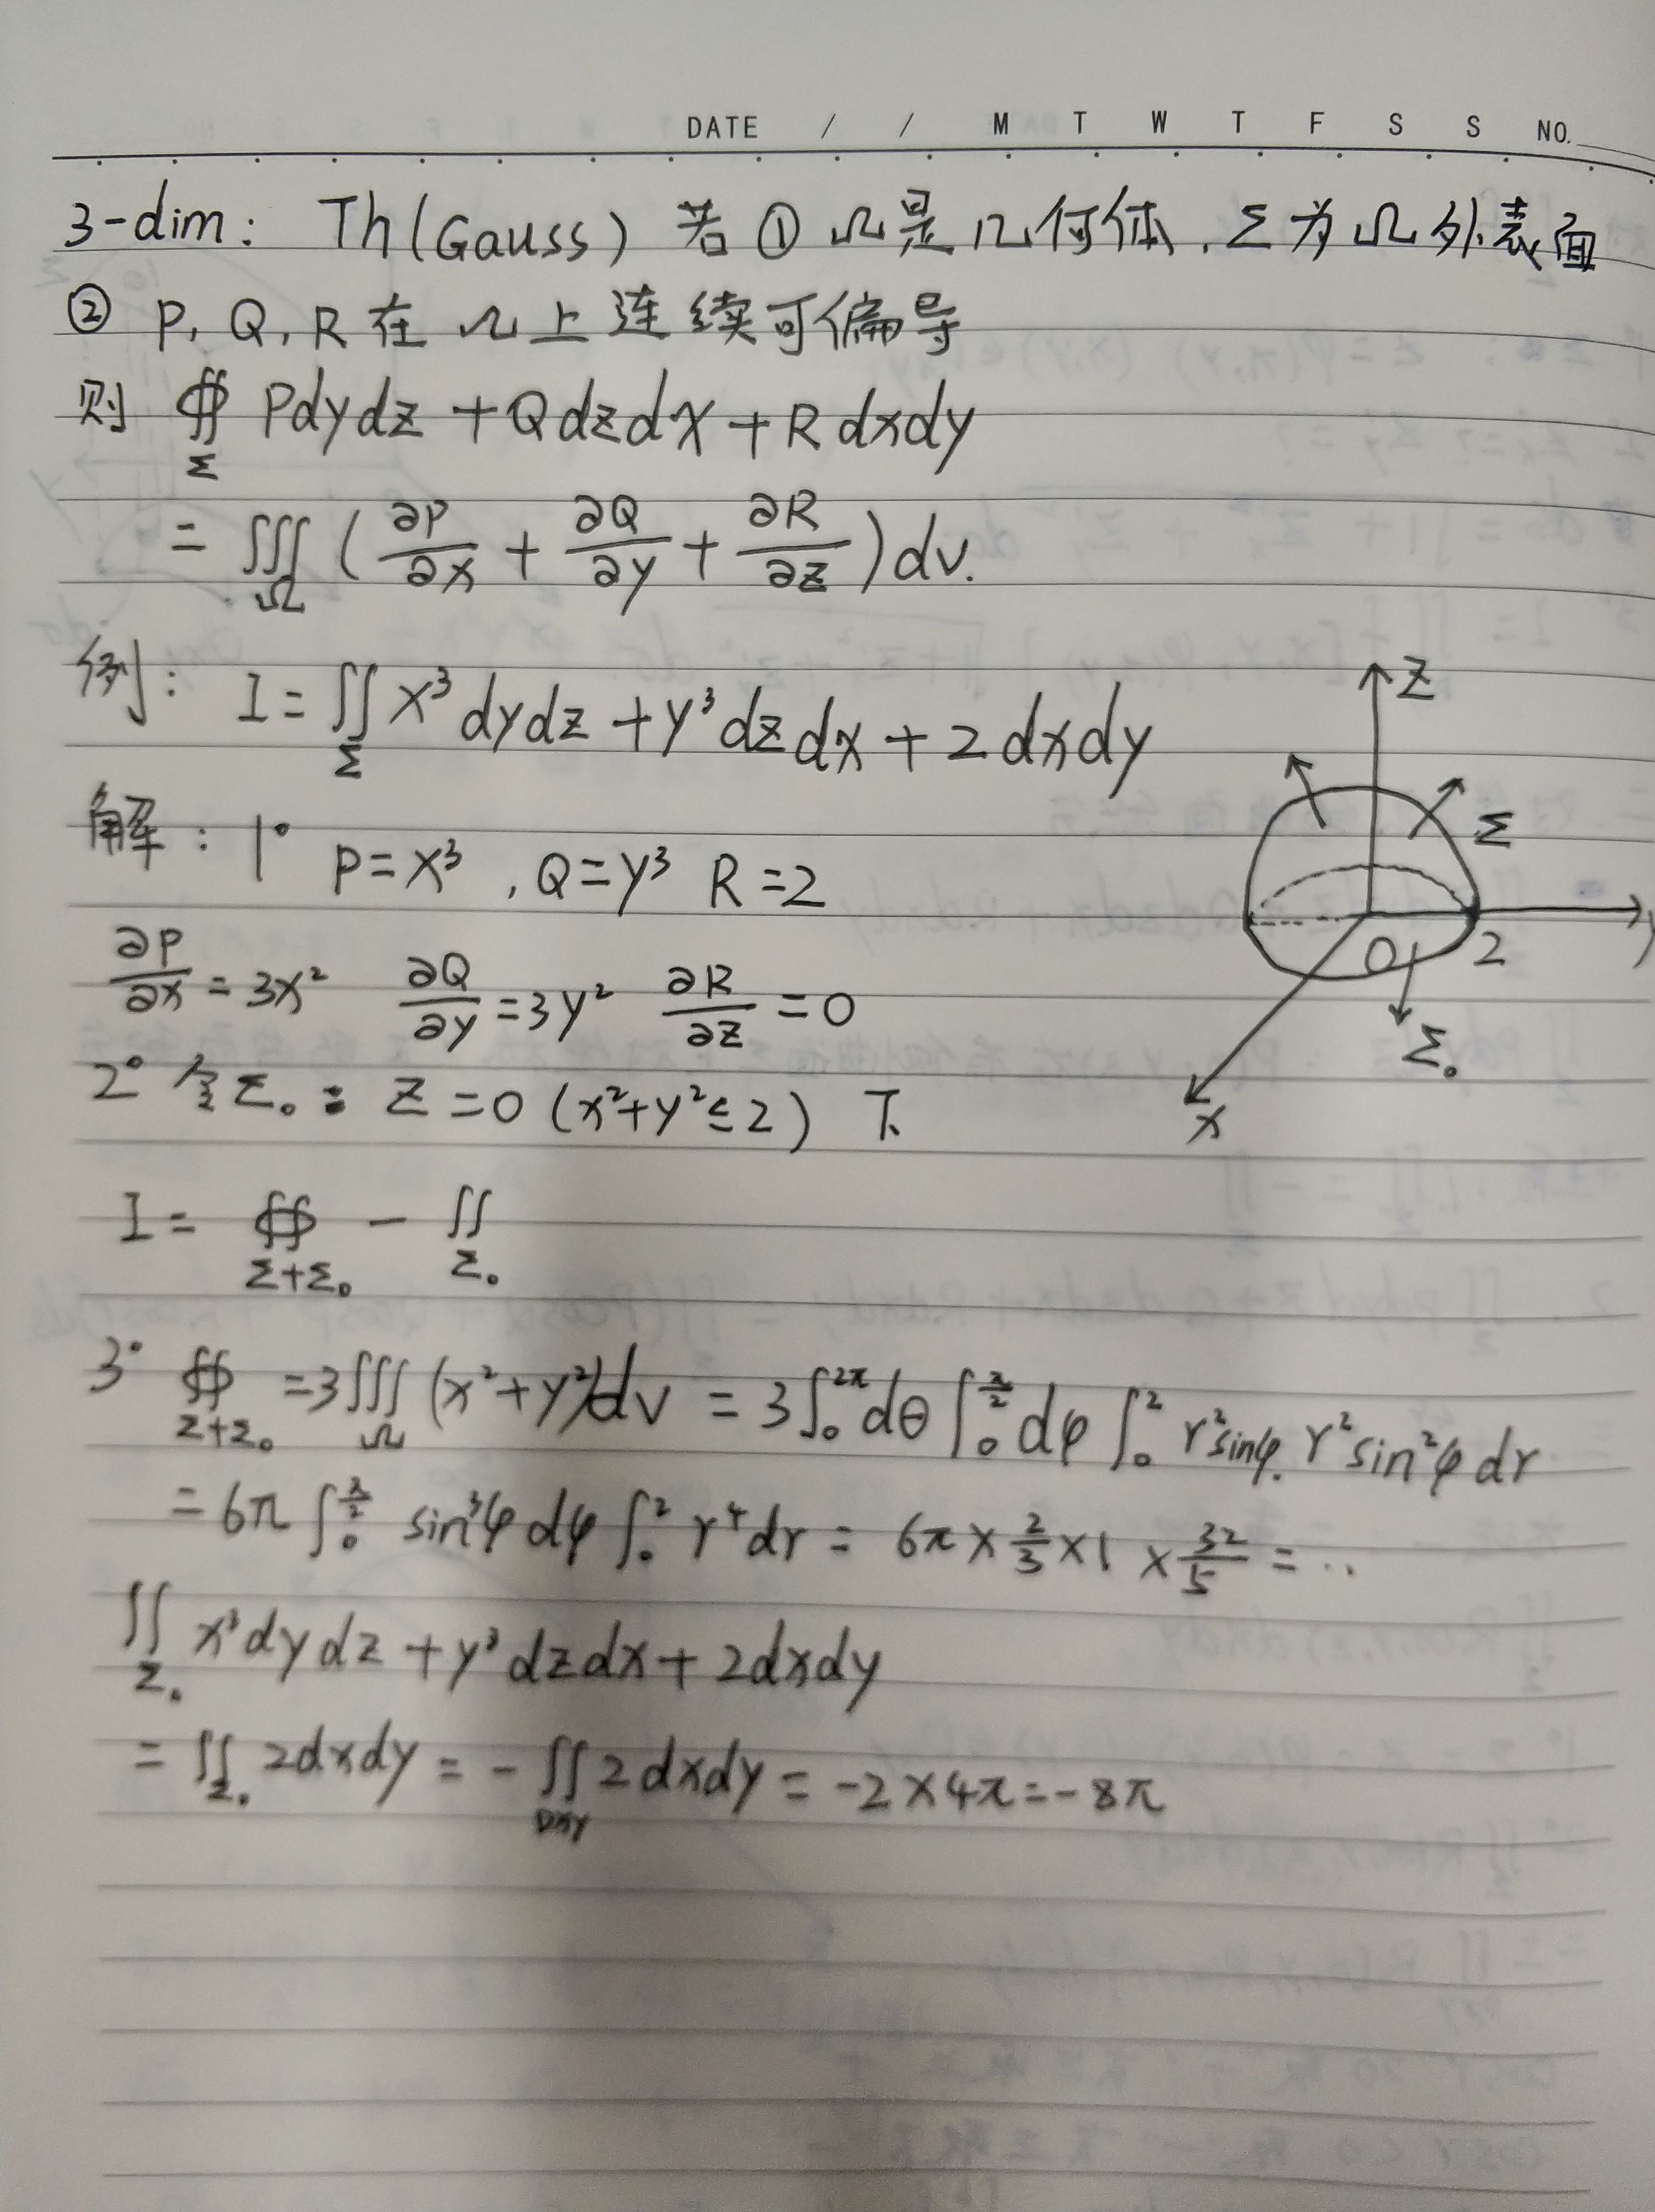 DATE / / M T W T F S S NO.
3-dim: Th(Gauss) 若 ① Ω是几何体, Σ为Ω外表面
② P, Q, R 在 Ω上连续可偏导
则 ∯_Σ Pdydz + Qdzdx + Rdxdy
= ∭_Ω (∂P/∂x + ∂Q/∂y + ∂R/∂z) dv.
例: I = ∬_Σ x³dydz + y³dzdx + 2dxdy
解: 1° P=x³, Q=y³ R=2
∂P/∂x = 3x² ∂Q/∂y = 3y² ∂R/∂z = 0
2° 令Σ₀: z=0 (x²+y²≤2) 下
I = ∯_{Σ+Σ₀} - ∬_{Σ₀}
3° ∯_{Σ+Σ₀} = 3∭_Ω (x²+y²)dv = 3∫₀^{2π}dθ ∫₀^{π/2}dφ ∫₀² r²sinφ. r²sin²φ dr
= 6π ∫₀^{π/2} sin³φ dφ ∫₀² r⁴dr = 6π × 2/3 × 1 × 32/5 = ..
∬_{Σ₀} x³dydz + y³dzdx + 2dxdy
= ∬_{Σ₀} 2dxdy = -∬_{Dxy} 2dxdy = -2×4π = -8π
z
Σ
y
O
2
Σ₀
x